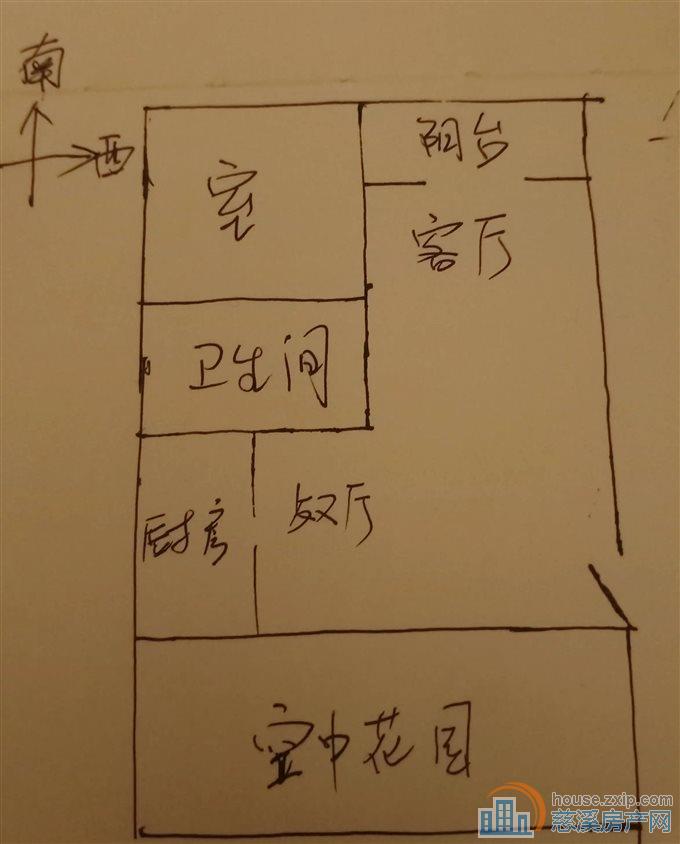 南
西
阳台
室
客厅
卫生间
厨房
歺厅
空中花园
house.zxip.com
慈溪房产网